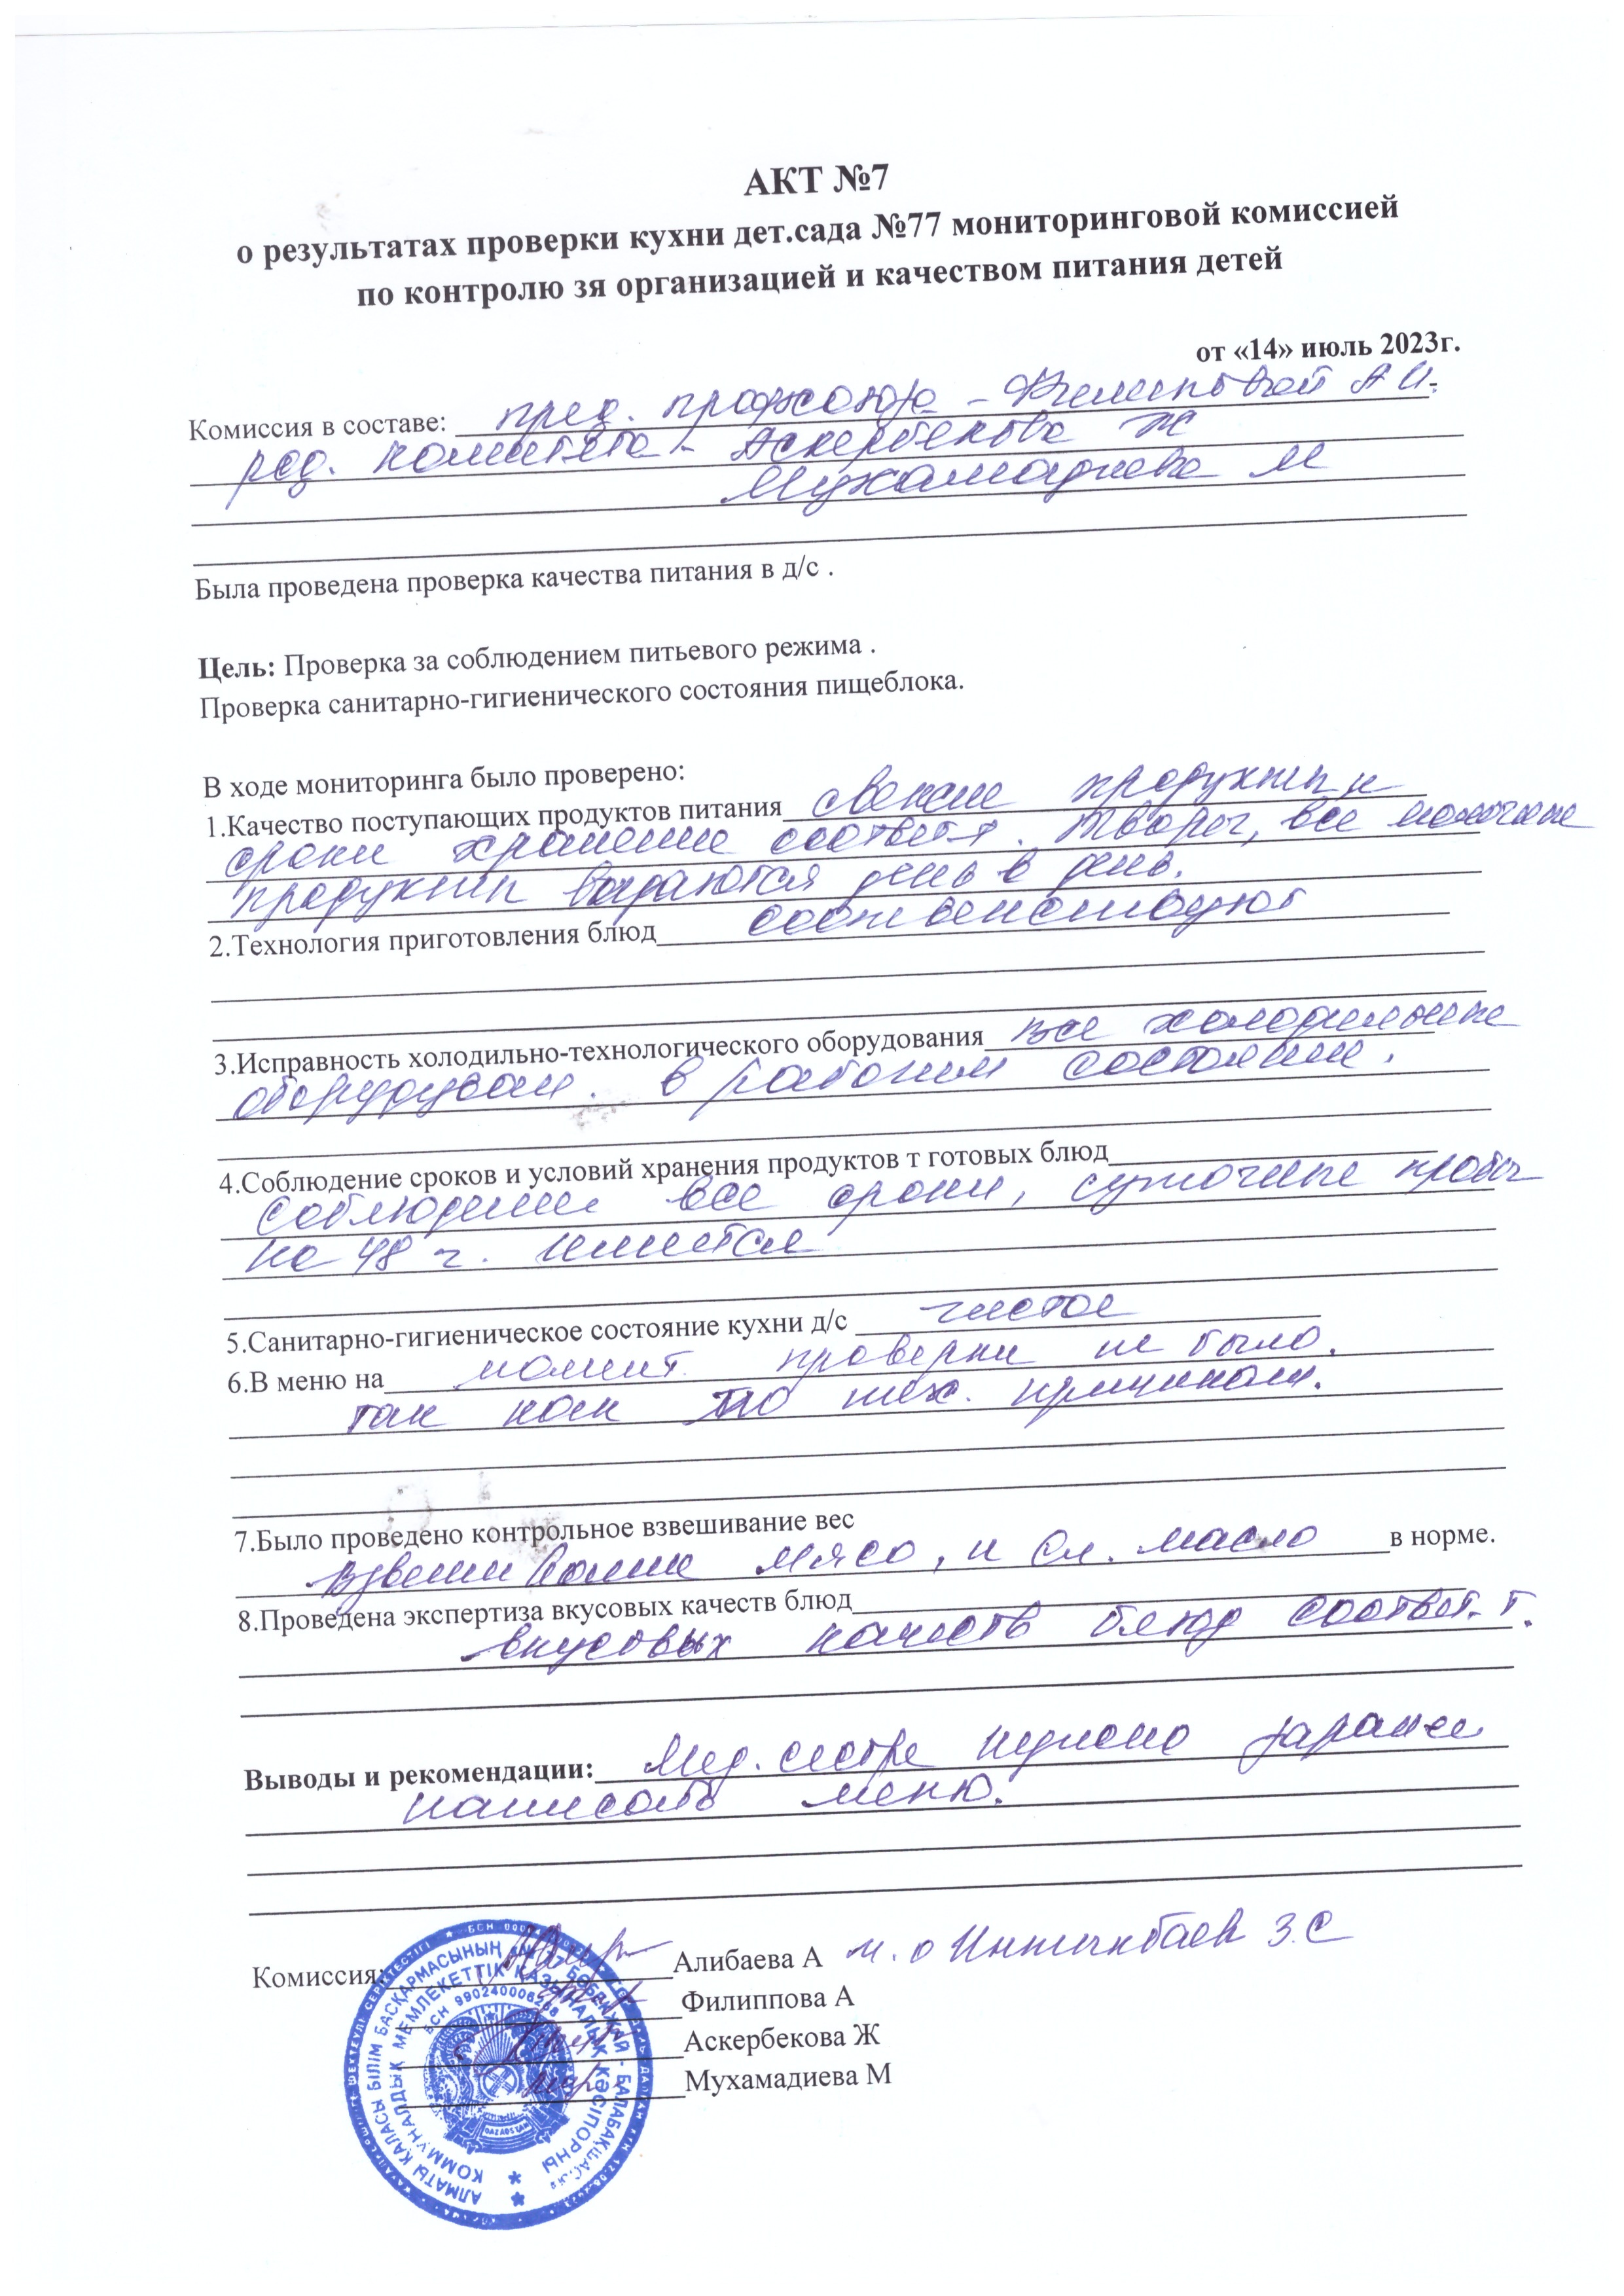 АКТ №7
о результатах проверки кухни дет.сада №77 мониторинговой комиссией
по контролю зя организацией и качеством питания детей
от «14» июль 2023г.
Комиссия в составе: пред. профсоюза - Филипповой А И.
род. комитета - Аскербекова Ж
Мухамадиева М
Была проведена проверка качества питания в д/с .
Цель: Проверка за соблюдением питьевого режима .
Проверка санитарно-гигиенического состояния пищеблока.
В ходе мониторинга было проверено:
1.Качество поступающих продуктов питания свежие продукты и
сроки хранение соответ. Творог, все молочные
продукты выдаются день в день.
2.Технология приготовления блюд
3.Исправность холодильно-технологического оборудования все холодильные
оборудован. в рабочим состоянии.
4.Соблюдение сроков и условий хранения продуктов т готовых блюд
соблюдены все сроки, суточные пробы
на 48 ч. имеется
5.Санитарно-гигиеническое состояние кухни д/с чистое
6.В меню на момент проверки не было,
так как по тех. причинам.
7.Было проведено контрольное взвешивание вес
взвешивание мясо, и сл. масло в норме.
8.Проведена экспертиза вкусовых качеств блюд
вкусовых качеств блюд соответ.т.
Выводы и рекомендации: Мед. сестре нужно заранее
написать меню.
Комиссия: Алибаева А и.о З.С
Филиппова А
Аскербекова Ж
Мухамадиева М
АЛМАТЫ ҚАЛАСЫ БІЛІМ БАСҚАРМАСЫНЫҢ №77 БӨБЕКЖАЙ - БАЛАБАҚШАСЫ
КОММУНАЛДЫҚ МЕМЛЕКЕТТІК ҚАЗЫНАЛЫҚ КӘСІПОРНЫ
QAZAQSTAN